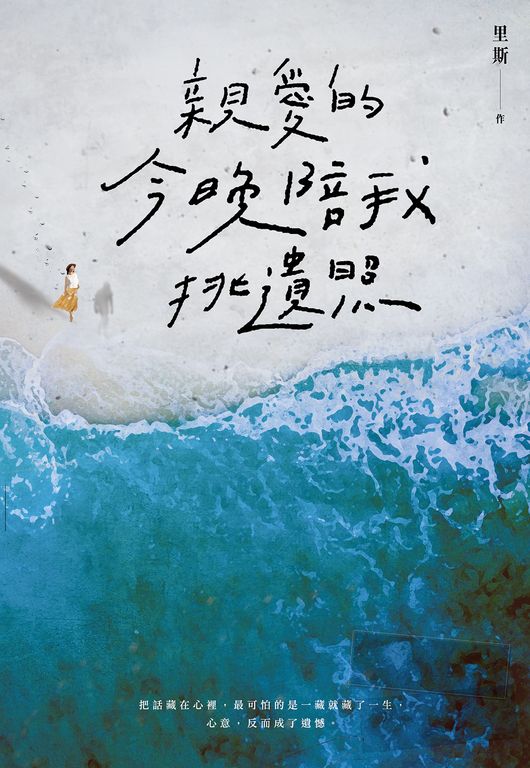 里斯
作
親愛的
今晚陪我
挑遺照
把話藏在心裡，最可怕的是一藏就藏了一生，
心意，反而成了遺憾。